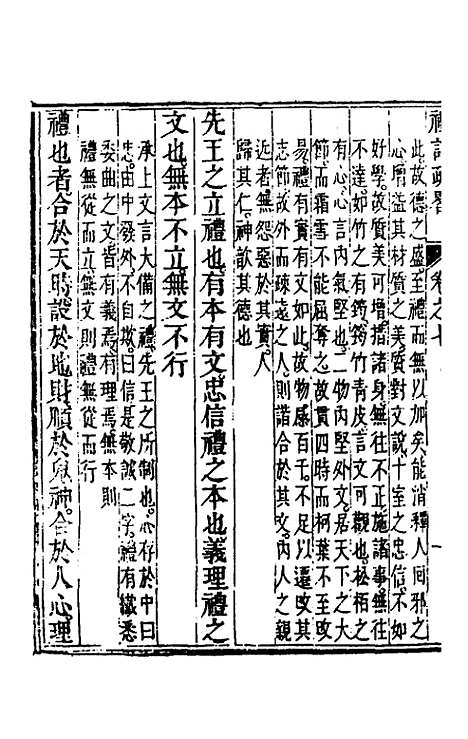 禮記疏畧 卷之七 一
此故德之盛至禮而無以加矣能消釋人回邪之
心增益其材質之美質對文說十室之忠信不如
好學故質美可增措諸身無往不正施諸事無往
不達如竹之有筠筠竹青皮言文可觀也松柏之
有心心言內氣堅也二物內堅外文居天下之大
節而霜雪不能屈奪之故貫四時而柯葉不至改
易禮有實有文如此故物感百千不足以遷改其
志節故外而疎遠之人則諧合於其文內人之親
近者無怨憝於其實人
歸其仁神歆其德也
先王之立禮也有本有文忠信禮之本也義理禮之
文也無本不立無文不行
承上文言大備之禮先王之所制也心存於中曰
忠由中發外不自欺曰信是敬誠二字禮有纖悉
委曲之文皆有義焉有理焉無本則
禮無從而立無文則禮無從而行
禮也者合於天時設於地財順於鬼神合於人心理